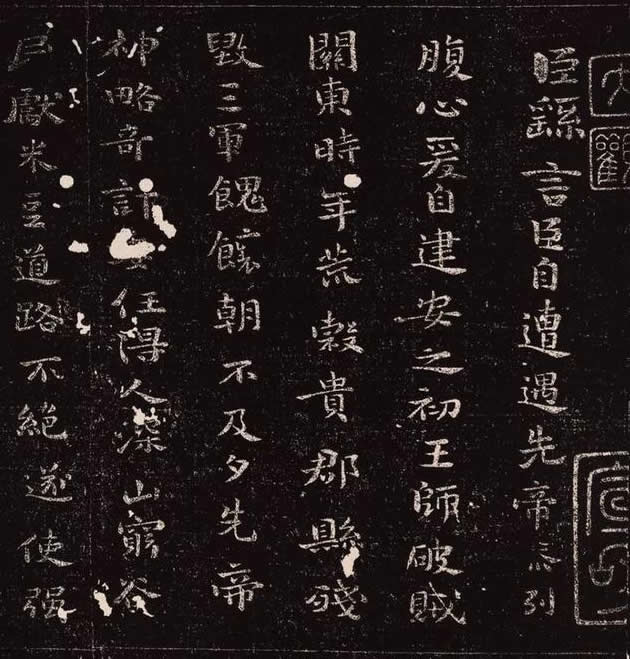 大觀
臣繇言臣自遭遇先帝忝列
腹心爰自建安之初王師破賊
關東時年荒穀貴郡縣殘
毀三軍餽饟朝不及夕先帝
神略奇計委任得人深山窮谷
民獻米豆道路不絕遂使强